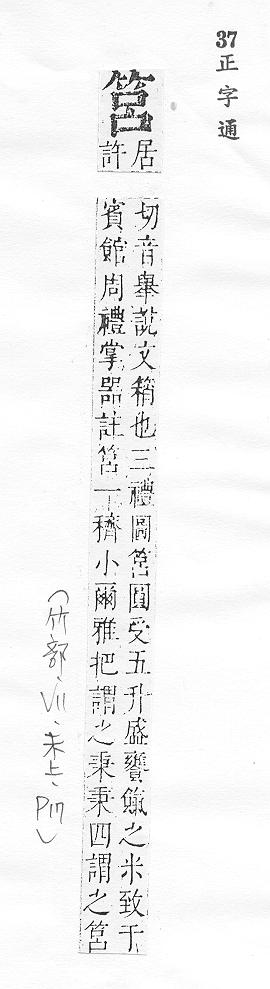 37
正字通
筥
居許
切音舉說文䈰也三禮圖筥圓受五升盛饔餼之米致于
賓館周禮掌器註筥一穧小爾雅把謂之秉秉四謂之筥
(竹部、VII、未上、P17)